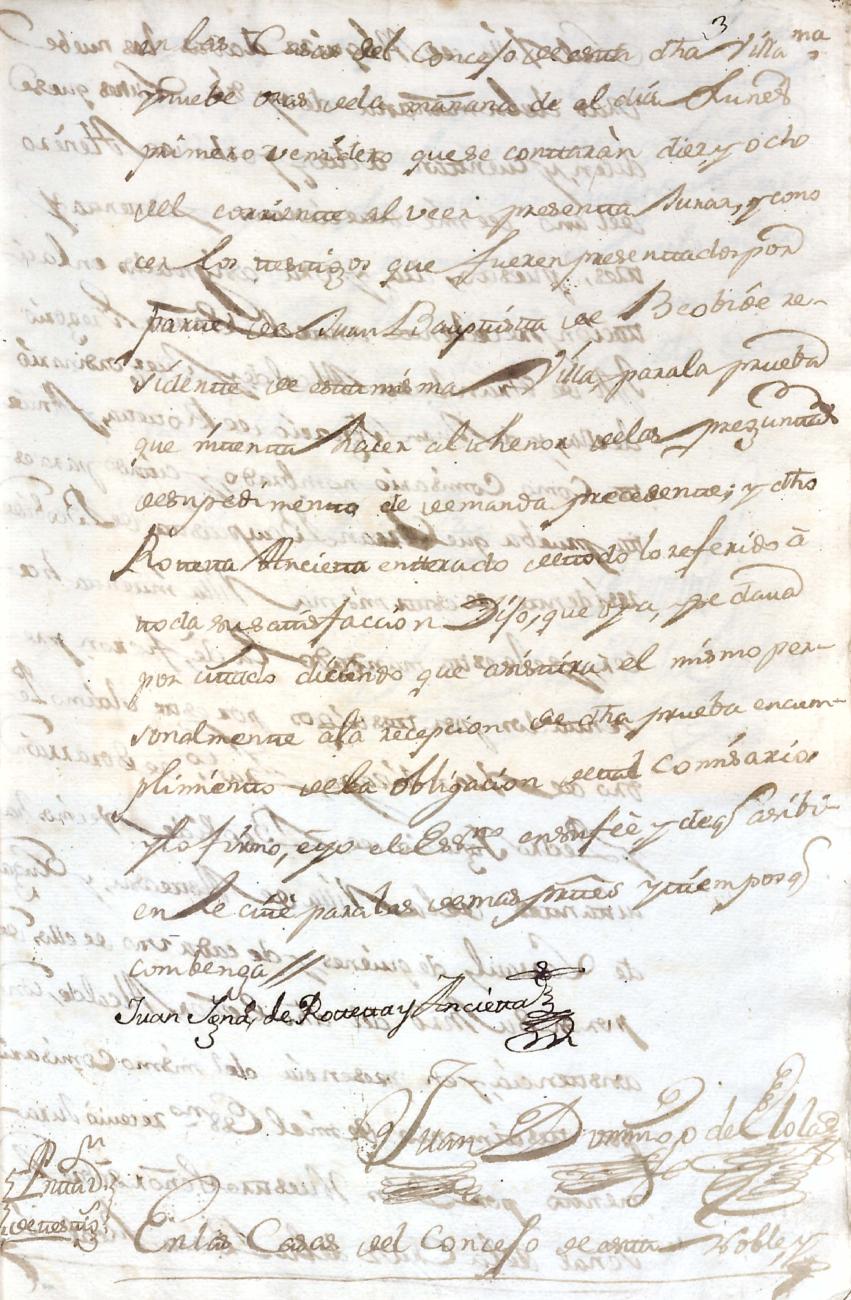 3
en las Casas del Concejo de esta dha Villa
ynuebe oras dela mañana de al dia Lunes
primero venidero que se contaràn diez y ocho
del corriente al veer presentta Jurar, y cono
cer los testtigos que fueren presenttados por
partte de Juan Bauptistta de Beobide re-
sidentte de estta misma Villa, parala prueba
que inttentta hacer al thenor delas preguntas
desu pedimentto de demanda precedente; y dho
Rotetta Anciétta entterado de ttodo lo referido à
ttoda su sattisfaccion Dijo, que oya, y se dava
por cittado diciendo que asisttirà el mismo per-
sonalmentte ala recepcion de dha prueba encum-
plimientto dela obligacion de ttal Comisario
y lo firmò, è yo el Essno en su feè y de q asibi-
en le citè para las demas prttes y ttiempos q
combenga //
Juan Ignº de Rotetta y Ancietta
Juan Domingo de Elola
Pnttazn
de testtigs
En las Casas del Concejo de estta Noble y